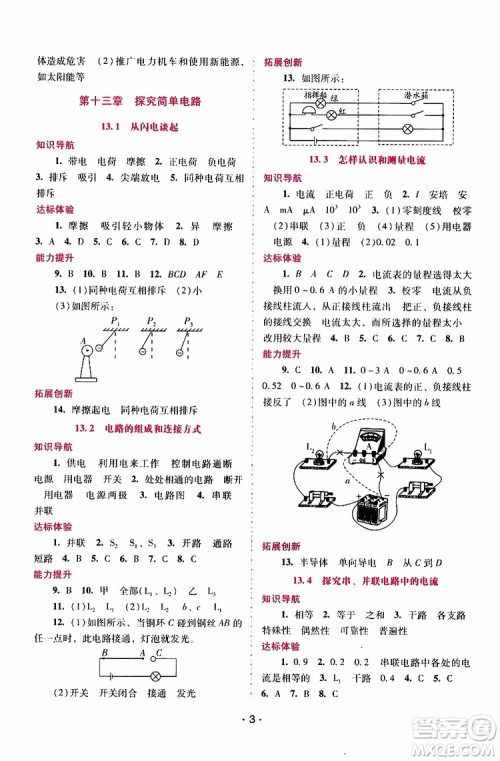 体造成危害　(2)推广电力机车和使用新能源,
如太阳能等
第十三章　探究简单电路
13.1　从闪电谈起
知识导航
1. 带电　电荷　摩擦　2. 正电荷　负电荷
3. 排斥　吸引　4. 尖端放电　5. 同种电荷互相
排斥
达标体验
1. 摩擦　吸引轻小物体　2. 异　摩擦
3. A　4. D　5. C　6. D　7. B　8. C
能力提升
9. B　10. B　11. A　12. BCD　AF　E
13. (1)同种电荷互相排斥　(2)小
(3)如图所示:
P₁　P₂　P₃
A
拓展创新
14. 摩擦起电　同种电荷互相排斥
13.2　电路的组成和连接方式
知识导航
1. 供电　利用电来工作　控制电路通断
电源　用电器　开关　2. 处处接通　断开
开　用电器　两端　3. 电路图　4. 串联
并联
达标体验
1. 并联　2. S₂　S₁　3. S₁　4. 断路　通路
短路　5. B　6. D　7. C　8. D
能力提升
9. D　10. 甲　全部　乙　不能　全部
11. (1)L₂　(2)L₁　(3)L₁
12. (1)如图所示,当铜环碰到铜丝 AB 的任
何一点时,电路接通,灯泡就发光。
A　B
C
(2)开关　开关闭合　接通　发光
拓展创新
13. 如图所示:
指挥船　绿　潜水箱
红
13.3　怎样认识和测量电流
知识导航
1. 电流　大小　正电荷　2. I　安培　安
A　mA　μA　10³　10³　3. (1)零刻度线　校零
(2)串联　(3)正　负　(4)量程　(5)用电器
电源　4. (1)量程　(2)0.02　0.1
达标体验
1. D　2. A　3. D　4. 电流表的量程选得太大
换用 0～0.6 A 的量程　5. 校零　交换正、负
接线柱的接线　电流流出　把正、负接线柱
的接线交换　电流太小　量程选择太大
改用较大量程　6. B　7. C　8. B　9. A
能力提升
10. C　11. A　12. 0～3 A　0～0.6 A　0.5
0.52　0.52　13. (1)电流表的正、负接线柱
接反了　(2)图中的 a 线　(3)图中的 b 线
b
L₂　L₁
a
拓展创新
13. 半导体　单向导电　B　从 C 到 D
13.4　探究串、并联电路中的电流
知识导航
1. 相等　2. 相等　和　3. 干路　各支路
特殊性　偶然性　可靠性　普遍性
达标体验
1. 0.9　2. 0.4　0.2　串联电路中的电
流处处相等　3. L₁　并　干路　4. C　5. A
6. A　7. D　8. A
· 3 ·